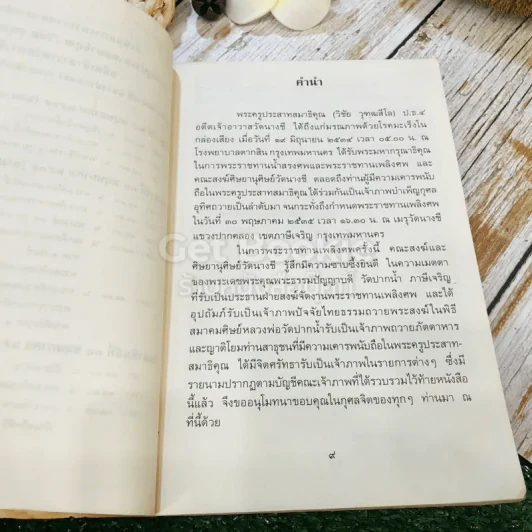 คำนำ
พระครูประสาทสมาธิคุณ (วิชัย วุฑฒสีโล) ป.ธ.๔
อดีตเจ้าอาวาสวัดนางชี ได้ถึงแก่มรณภาพด้วยโรคมะเร็งใน
กล่องเสียง เมื่อวันที่ ๑๙ มิถุนายน ๒๕๓๔ เวลา ๐๕.๐๐ น. ณ
โรงพยาบาลตากสิน กรุงเทพมหานคร ได้รับพระมหากรุณาธิคุณ
ในการพระราชทานน้ำสรงศพและพระราชทานเพลิงศพ และ
คณะสงฆ์ศิษยานุศิษย์วัดนางชี ตลอดถึงท่านผู้มีความเคารพนับ
ถือในพระครูประสาทสมาธิคุณได้ร่วมกันเป็นเจ้าภาพบำเพ็ญกุศล
อุทิศถวายเป็นลำดับมา จนกระทั่งถึงกำหนดพระราชทานเพลิงศพ
ในวันที่ ๓๐ พฤษภาคม ๒๕๓๕ เวลา ๑๖.๓๐ น. ณ เมรุวัดนางชี
แขวงปากคลอง เขตภาษีเจริญ กรุงเทพมหานคร
ในการพระราชทานเพลิงศพครั้งนี้ คณะสงฆ์และ
ศิษยานุศิษย์วัดนางชี รู้สึกมีความซาบซึ้งยินดี ในความเมตตา
ของพระเดชพระคุณพระธรรมปัญญาบดี วัดปากน้ำ ภาษีเจริญ
ที่รับเป็นประธานฝ่ายสงฆ์จัดงานพระราชทานเพลิงศพ และได้
อุปถัมภ์รับเป็นเจ้าภาพปัจจัยไทยธรรมถวายพระสงฆ์ในพิธี
สมาคมศิษย์หลวงพ่อวัดปากน้ำรับเป็นเจ้าภาพถวายภัตตาหาร
และญาติโยมท่านสาธุชนที่มีความเคารพนับถือในพระครูประสาท-
สมาธิคุณ ได้มีจิตศรัทธารับเป็นเจ้าภาพในรายการต่างๆ ซึ่งมี
รายนามปรากฏตามบัญชีคณะเจ้าภาพที่ได้รวบรวมไว้ท้ายหนังสือ
นี้แล้ว จึงขออนุโมทนาขอบคุณในกุศลจิตของทุกๆ ท่านมา ณ
ที่นี้ด้วย
๙